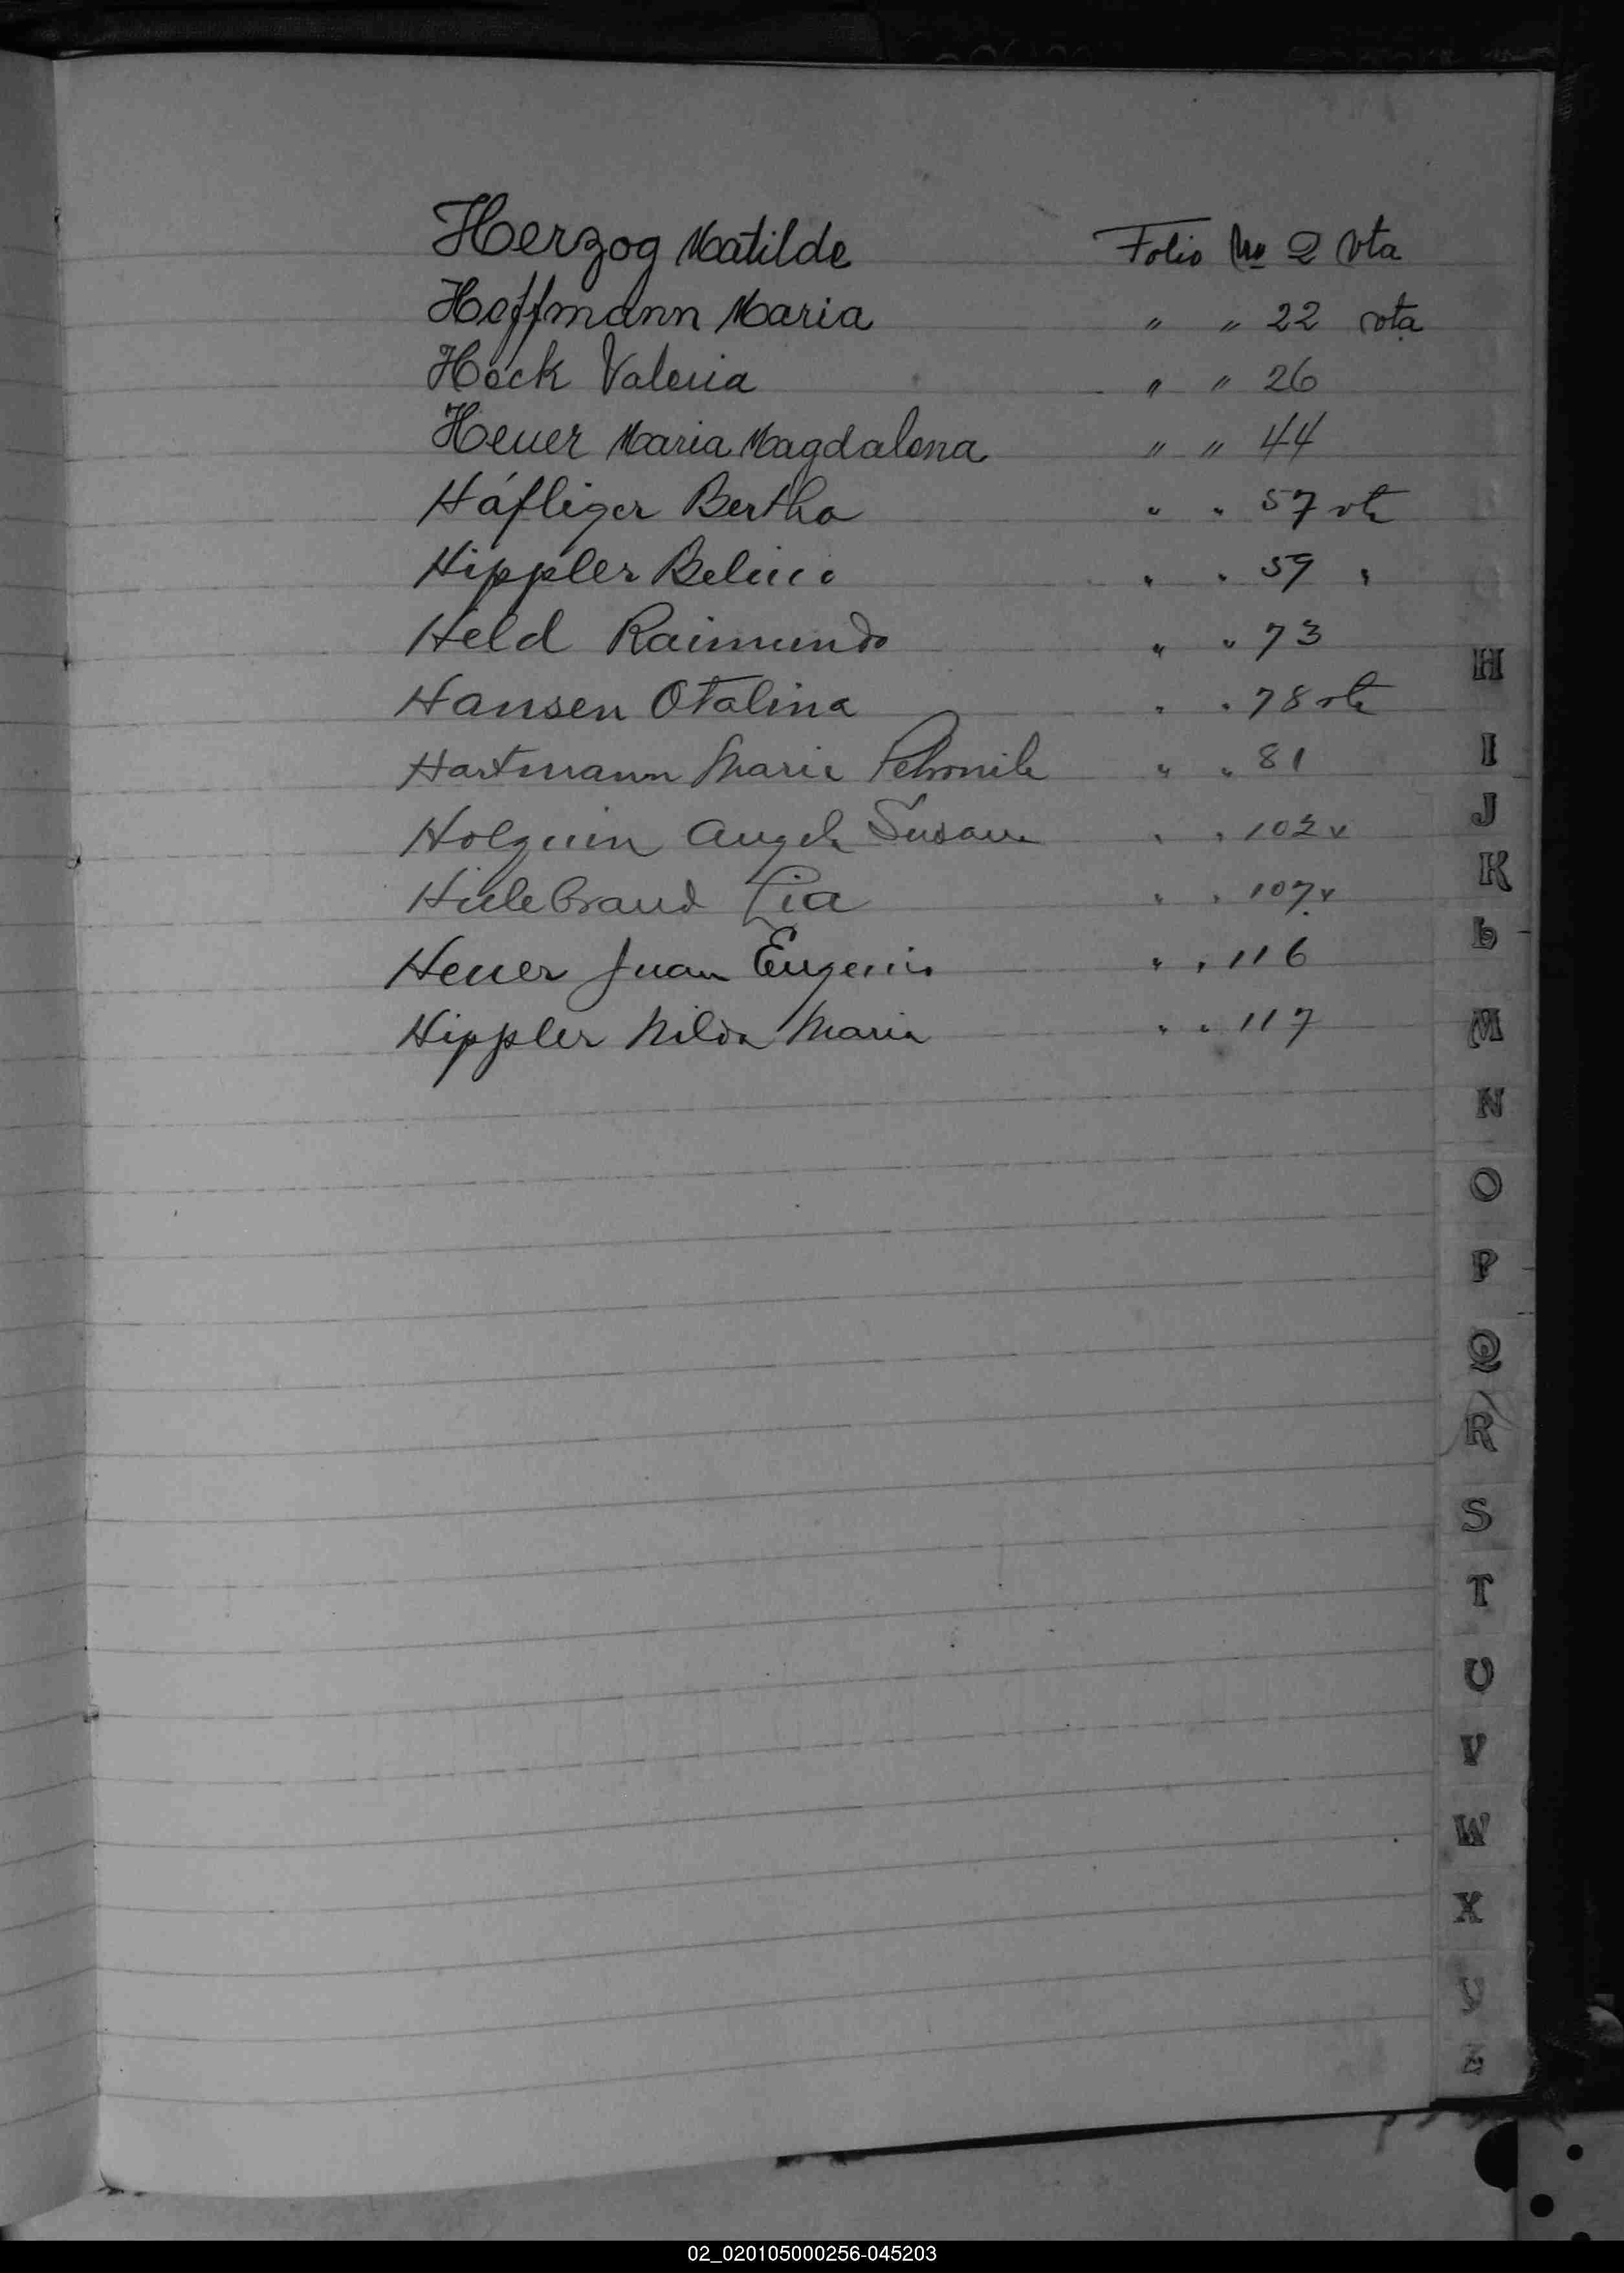 Herzog Matilde Folio No 2 vta
Hoffmann Maria " " 22 vta
Hock Valeria " " 26
Heuer Maria Magdalena " " 44
Háfliger Bertha " " 57 vta
Hippler " " 59 "
Held Raimundo " " 73
Hansen Otalina " " 78 vta
Hartmann Maria Petronila " " 81
Holguin Angela Susana " " 102 v
Hildebrand Lia " " 107 v
Heuer Juan Eugenio " " 116
Hippler Nilda Maria " " 117
H
I
J
K
L
M
N
O
P
Q
R
S
T
U
V
W
X
Y
Z
02_020105000256-045203